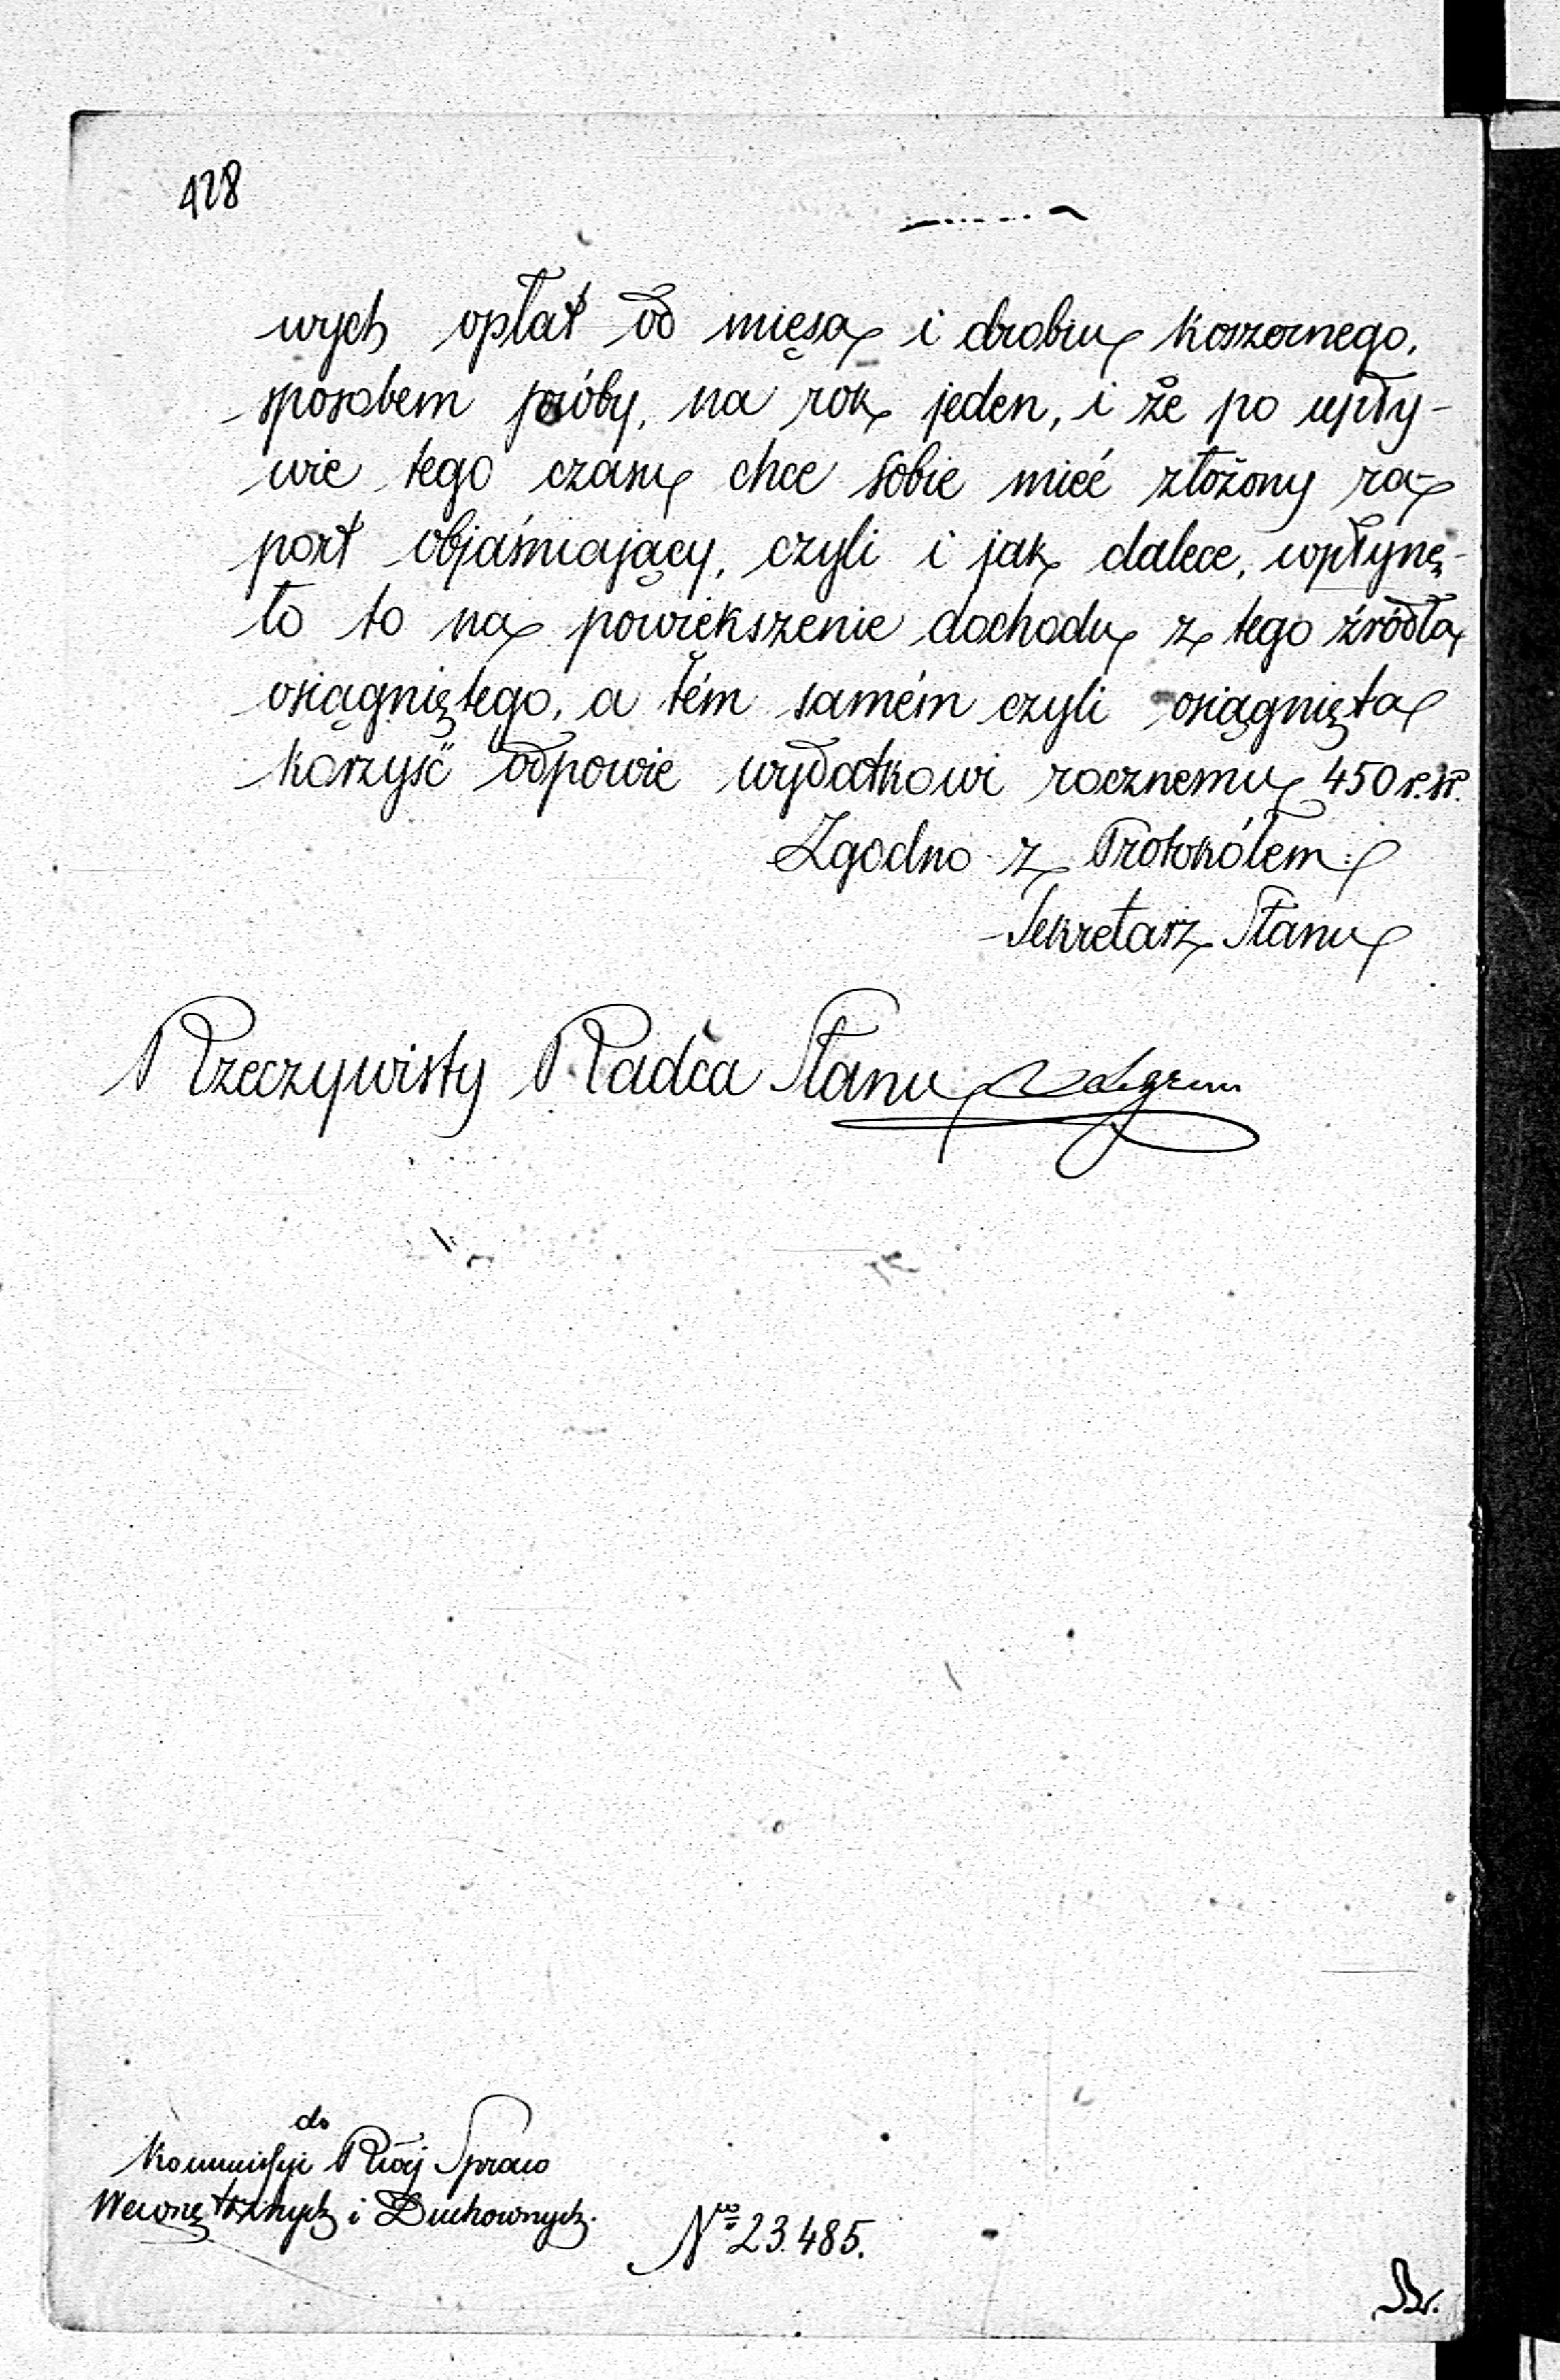 428
wych opłat od mięsa i drobiu koszernego,
sposobem próby, na rok jeden, i że po upły-
wie tego czasu chce sobie mieć złożony ra-
port objaśniający, czyli i jak dalece, wpłynę-
ło to na powiększenie dochodu z tego źródła
osiągniętego, a tém samém czyli osiągnięta
korzyść odpowie wydatkowi rocznemu 450 r. sr.
Zgodno z Protokółem:
Sekretarz Stanu
Rzeczywisty Radca Stanu
do
Kommissyi Rząj Spraw
Wewnętrznych i Duchownych.
Nro 23.485.